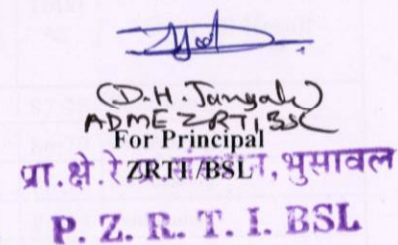 (D.H. Jangale)
ADME ZRTI, BSL
For Principal
ZRTI /BSL
प्रा.क्षे.रे.प्र.संस्थान, भुसावल
P. Z. R. T. I. BSL